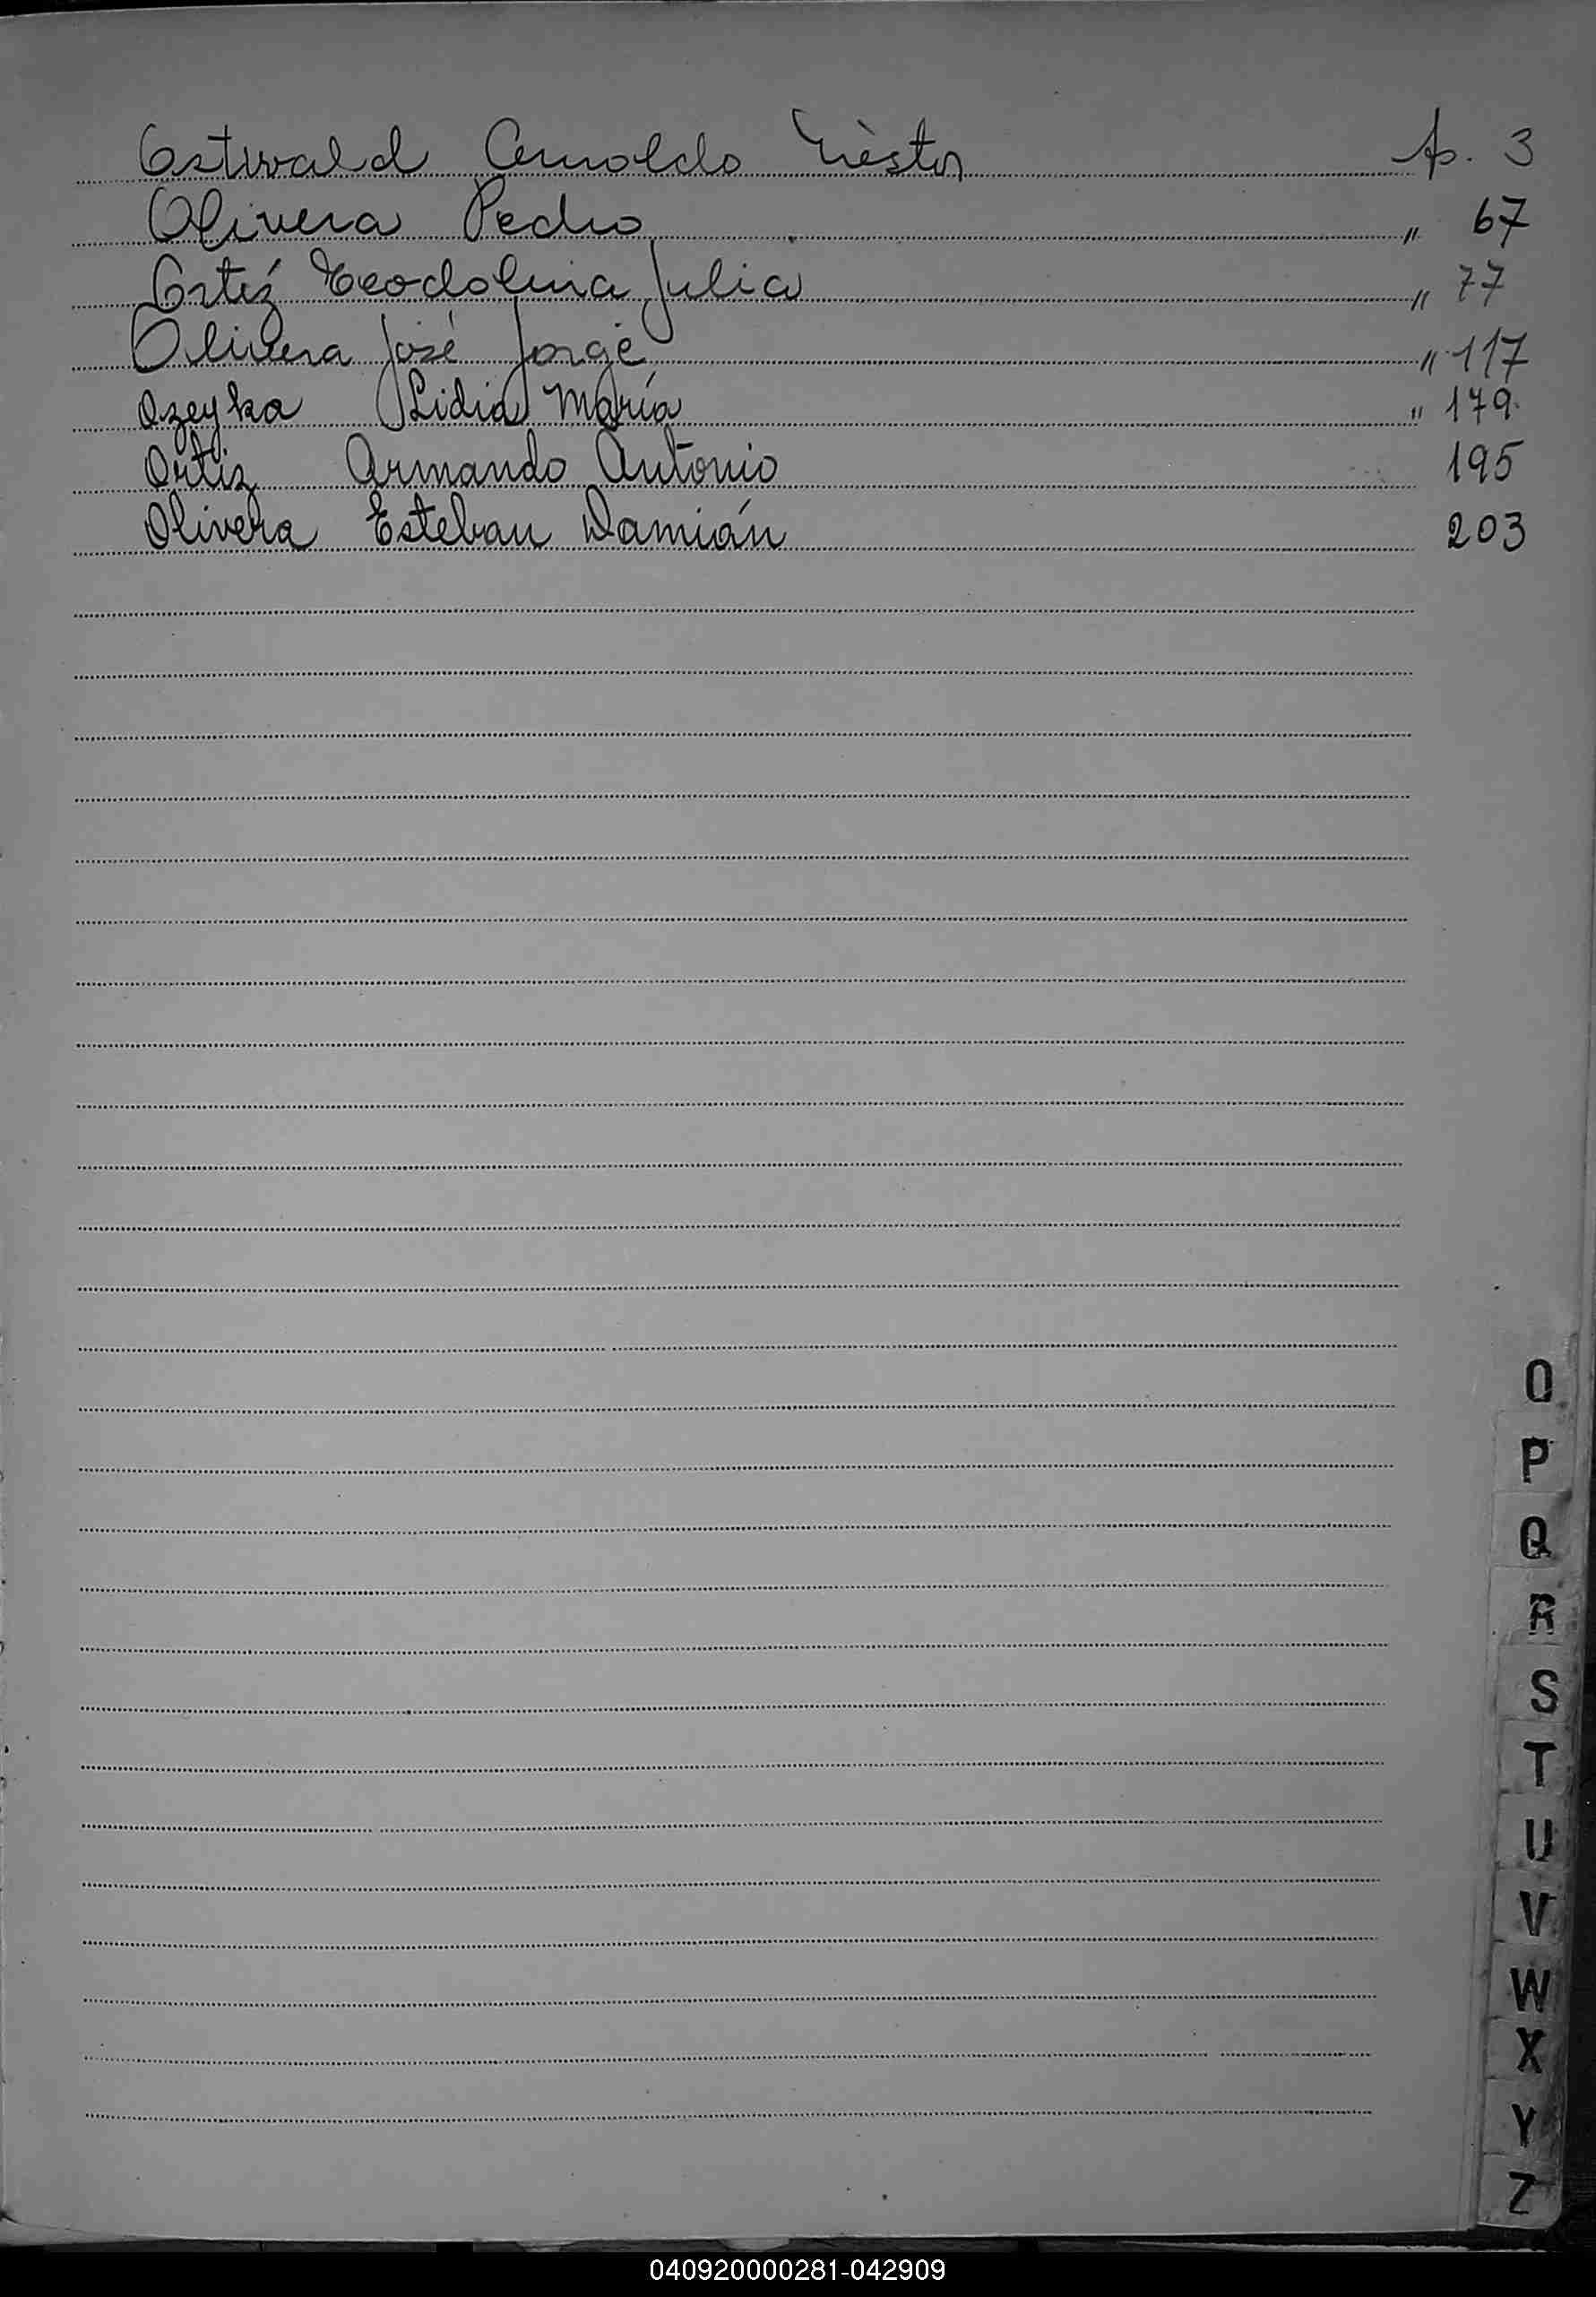 Ostwald Arnoldo Nèstor p. 3
Olivera Pedro " 67
Ortíz Teodolina Julia " 77
Olivera José Jorge " 117
Ozeyka Lidia María " 179
Ortiz Armando Antonio 195
Olivera Esteban Damián 203
O
P
Q
R
S
T
U
V
W
X
Y
Z
040920000281-042909